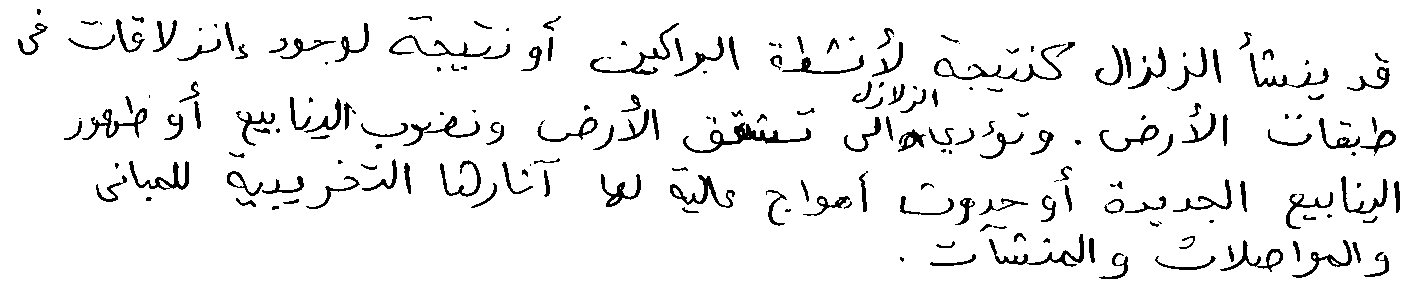 قد ينشأ الزلزال كنتيجة لأنشطة البراكين أو نتيجة لوجود إنزلاقات فى
طبقات الأرض. وتؤدي الزلازل الى تشقق الأرض ونضوب الينابيع أو ظهور
الينابيع الجديدة أو حدوث أمواج عالية لها آثارها التخريبية للمبانى
والمواصلات والمنشآت.